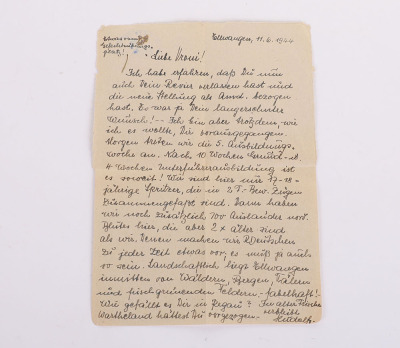 Etwas vom
Gefechtsübungs-
platz!
Ellwangen, 11.6.1944
Liebe Vroni!
Ich habe erfahren, daß Du nun
auch Dein Revier verlassen hast und
die neue Stellung als bezogen
hast. Es war ja Dein langersehnter
Wunsch! -- Ich bin aber trotzdem, wie
ich es wollte, Dir vorausgegangen.
Morgen treten wir die 5. Ausbildungs-
woche an. Nach 10 Wochen Grund- u.
4 Wochen Unterführerausbildung ist
es soweit! Wir sind hier nur 17-18-
jährige Spritzer, die in Zügen
zusammengefaßt sind. Dann haben
wir noch zusätzlich 700 Ausländer nord.
Blutes hier, die aber 2 x älter sind
als wir. Denen machen wir Deutschen
zu jeder Zeit etwas vor, es muß ja auch
so sein. Landschaftlich liegt Ellwangen
inmitten von Wäldern, Bergen, Tälern
und frischgrünenden Feldern - fabelhaft!
Wie gefällt es Dir in ? In alter Frische
Wartheland hättest Du vorgezogen.- verbleibt